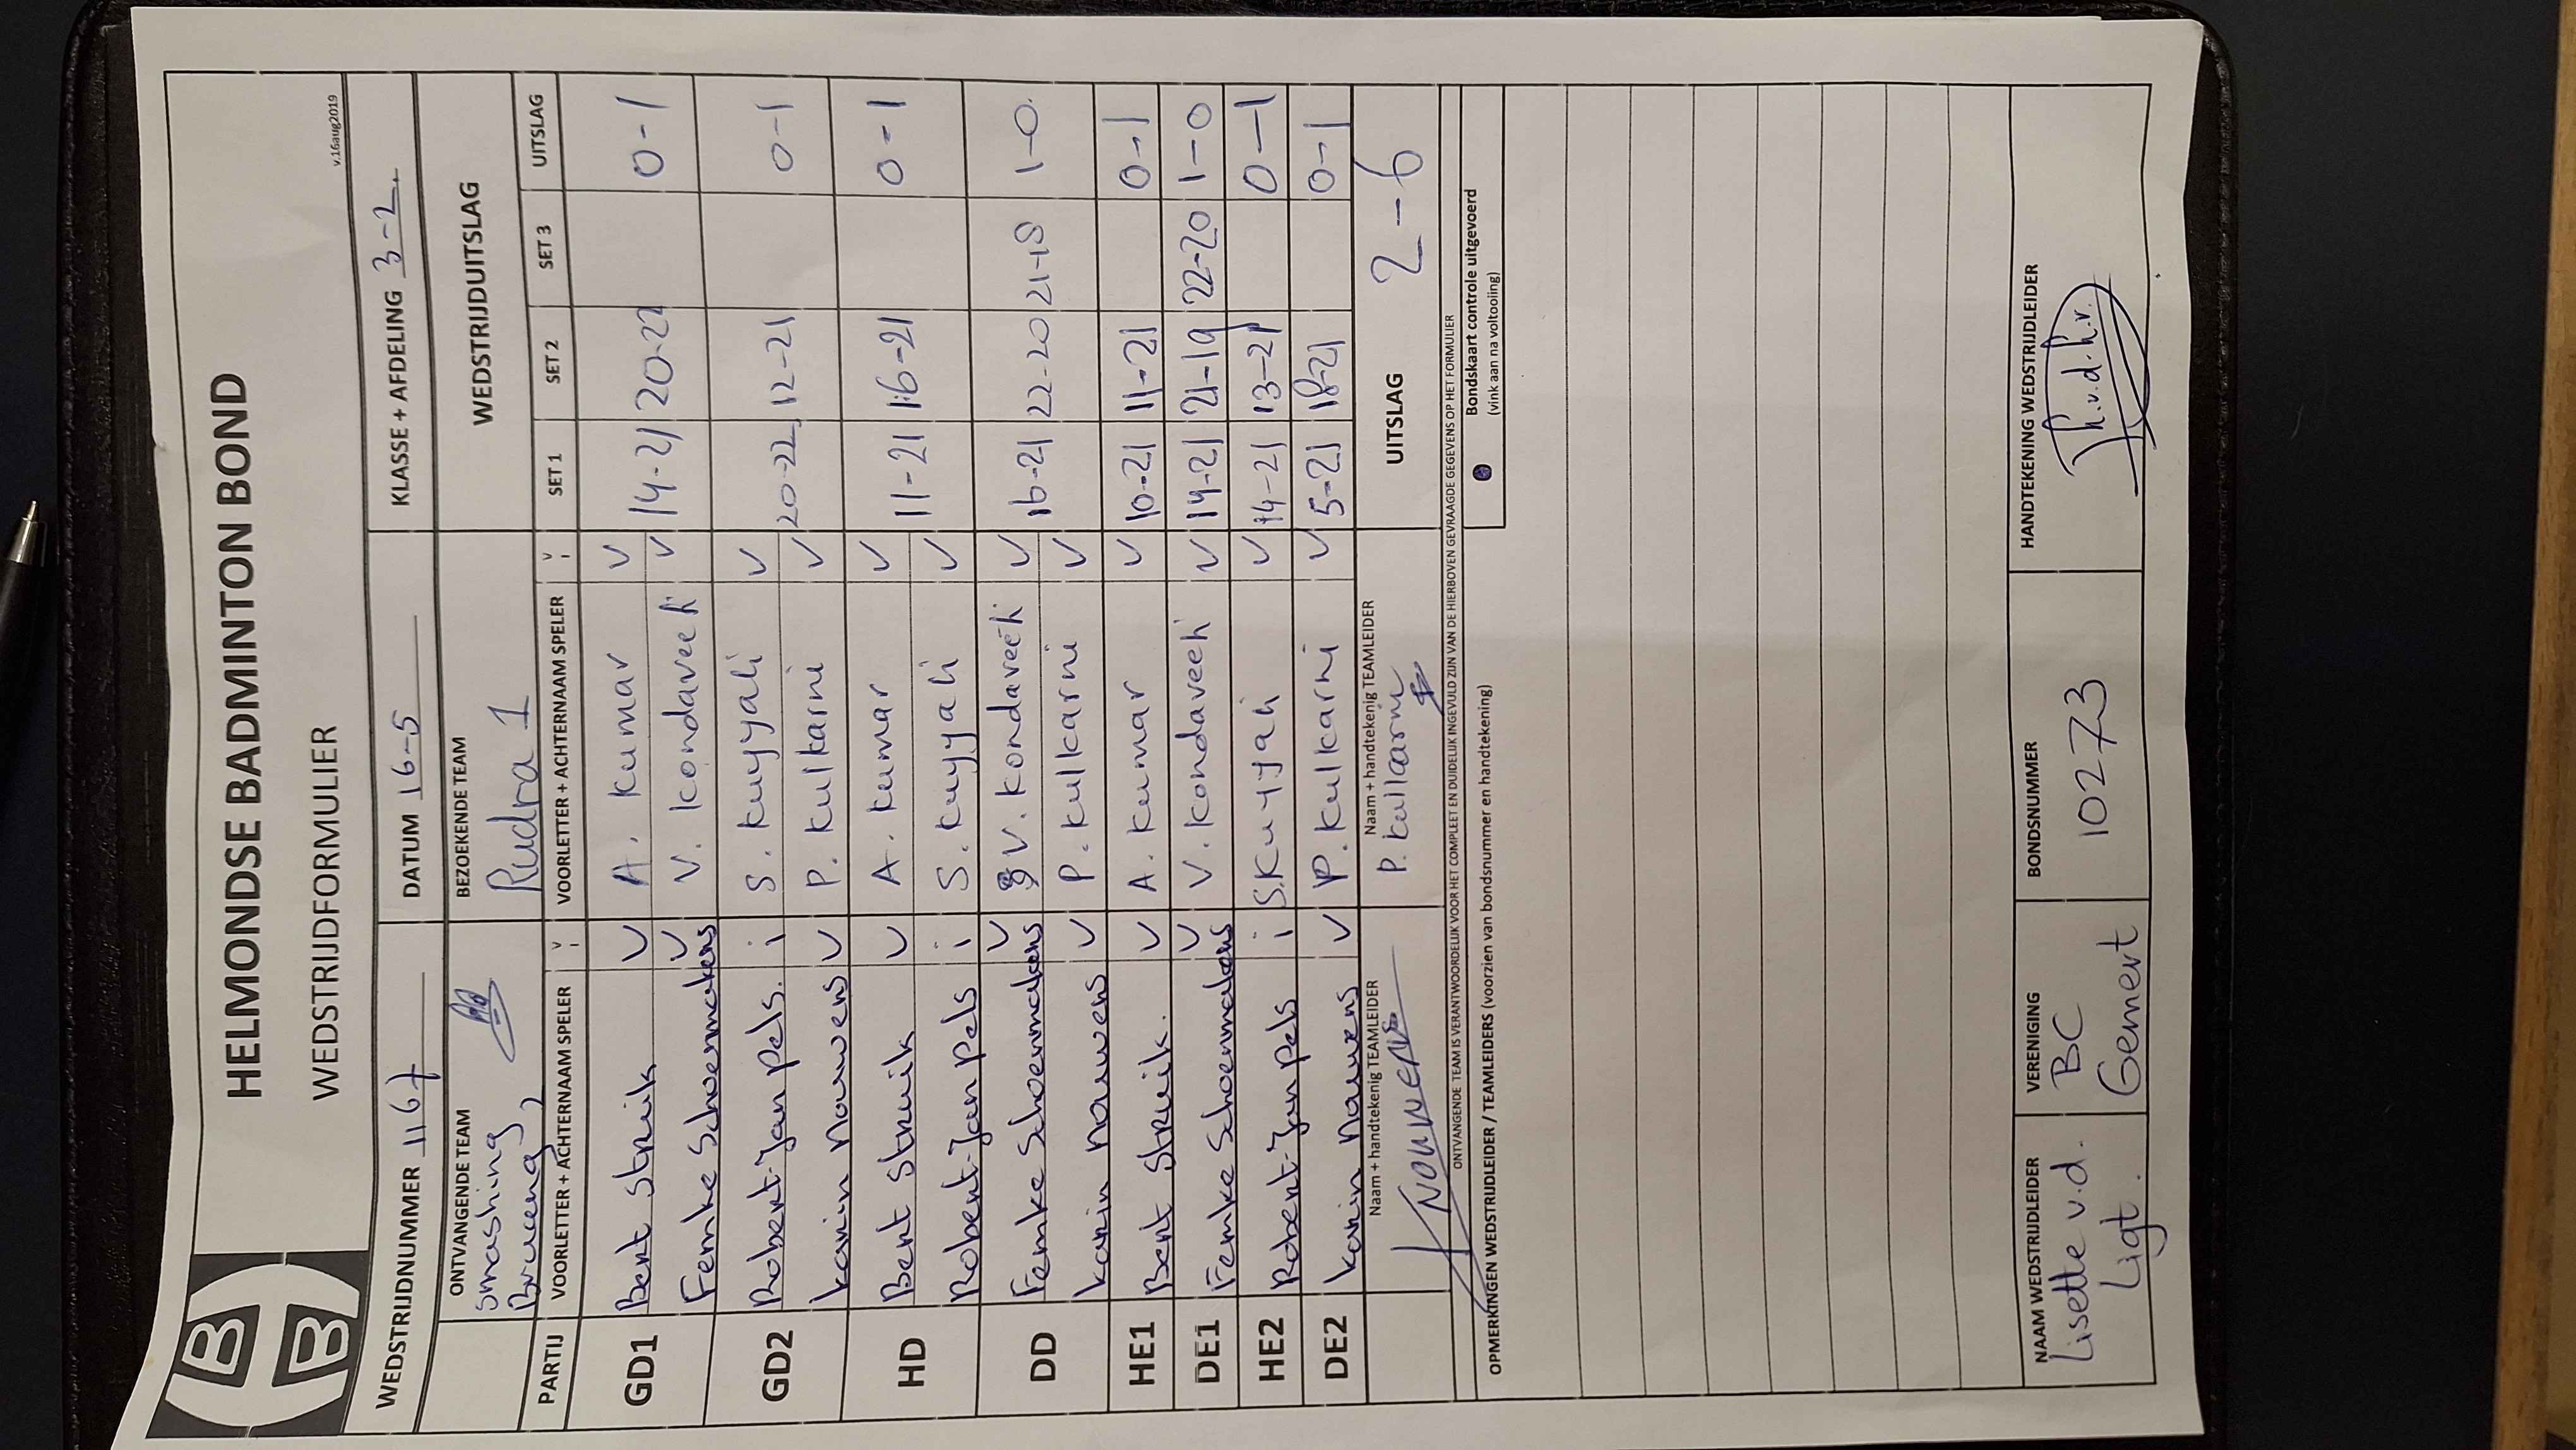 HELMONDSE BADMINTON BOND
WEDSTRIJDFORMULIER
v.16aug2019
WEDSTRIJDNUMMER 1167 DATUM 16-5 KLASSE + AFDELING 3-2.
ONTVANGENDE TEAM BEZOEKENDE TEAM WEDSTRIJDUITSLAG
smashing Rudra 1
PARTIJ VOORLETTER + ACHTERNAAM SPELER V i VOORLETTER + ACHTERNAAM SPELER V i SET 1 SET 2 SET 3 UITSLAG
GD1 Bert Struik V A. Kumar V 14-21 20-22 0-1
Femke Schoenmakers V V. Kondaveeti V
GD2 Robert-Jan Pels. i S. Kuyyali V 20-22 12-21 0-1
Karin Nouwens V P. Kulkarni V
HD Bert Struik V A. Kumar V 11-21 16-21 0-1
Robert-Jan Pels i S. Kuyyali V
DD Femke Schoenmakers V V. Kondaveeti V 16-21 22-20 21-18 1-0.
Karin Nouwens V P. Kulkarni V
HE1 Bert Struik. V A. Kumar V 10-21 11-21 0-1
DE1 Femke Schoenmakers V V. Kondaveeti V 14-21 21-19 22-20 1-0
HE2 Robert-Jan Pels i S.Kuyyali V 14-21 13-21 0-1
DE2 Karin Nouwens V P. Kulkarni V 5-21 18-21 0-1
Naam + handtekenig TEAMLEIDER Naam + handtekenig TEAMLEIDER UITSLAG 2-6
NOUWENS P. Kulkarni
ONTVANGENDE TEAM IS VERANTWOORDELIJK VOOR HET COMPLEET EN DUIDELIJK INGEVULD ZIJN VAN DE HIERBOVEN GEVRAAGDE GEGEVENS OP HET FORMULIER
OPMERKINGEN WEDSTRIJDLEIDER / TEAMLEIDERS (voorzien van bondsnummer en handtekening)
Bondskaart controle uitgevoerd
(vink aan na voltooiing)
NAAM WEDSTRIJDLEIDER VERENIGING BONDSNUMMER HANDTEKENING WEDSTRIJDLEIDER
Lisette v.d. BC 10273
Ligt. Gemert